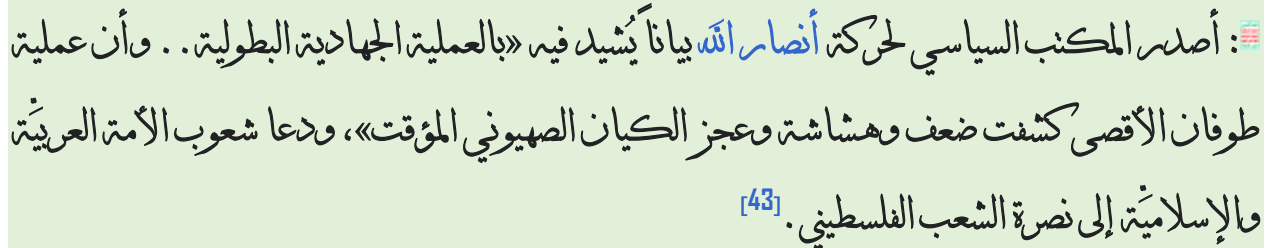 : أصدر المكتب السياسي لحركة أنصار الله بياناً يُشيد فيه «بالعملية الجهادية البطولية. . وأن عملية
طوفان الأقصى كشفت ضعف وهشاشة وعجز الكيان الصهيوني المؤقت»، ودعا شعوب الأمة العربيَّة
والإسلاميَّة إلى نصرة الشعب الفلسطيني.[43]